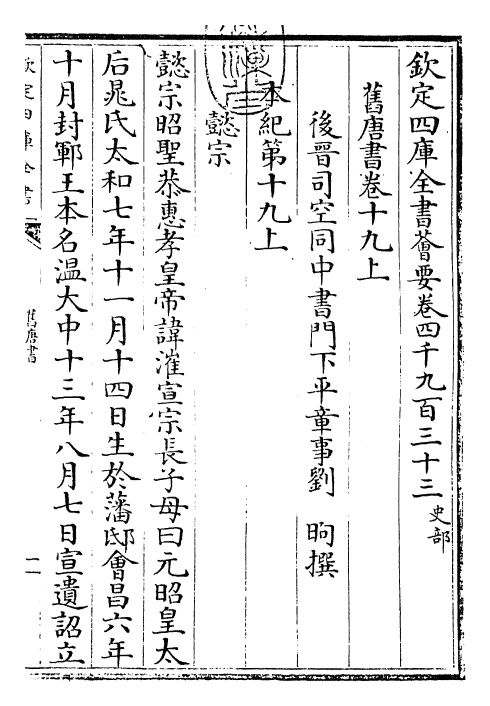 欽定四庫全書薈要卷四千九百三十三 史部
舊唐書卷十九上
後晉司空同中書門下平章事劉 昫撰
本紀第十九上
懿宗
懿宗昭聖恭惠孝皇帝諱漼宣宗長子母曰元昭皇太
后晁氏太和七年十一月十四日生於藩邸會昌六年
十月封鄆王本名溫大中十三年八月七日宣遺詔立
欽定四庫全書
舊唐書
一